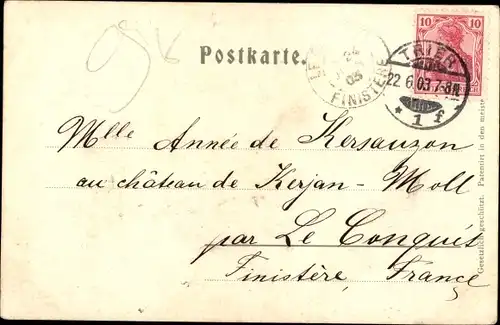 Postkarte.
10 10
TRIER
22.6.03.7-8N.
* 1 f
03
FINISTERE
Mlle Année de Kersauzon
au château de Kerjan-Moll
par Le Conquis
Finistère, France
Gesetzlich geschützt. Patentirt in den meiste